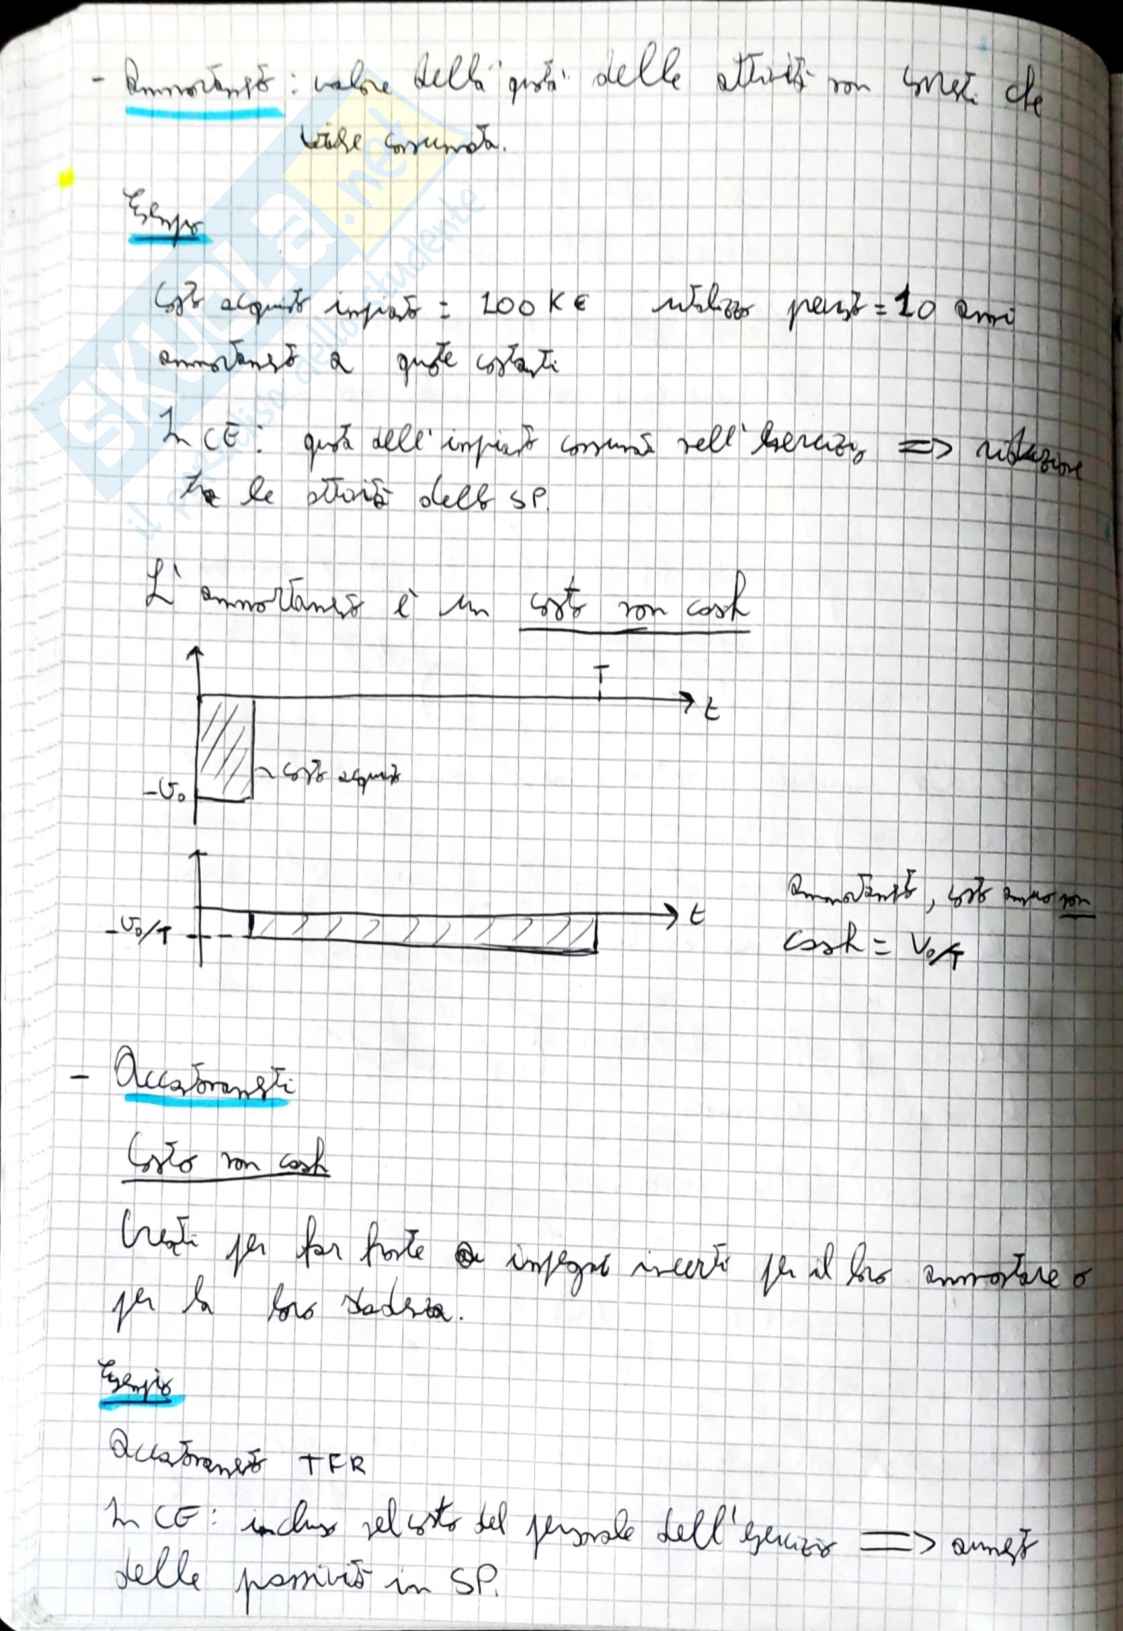 - Ammortamento: valore della "quota" delle attività non correnti che
viene consumata.
Esempio
Costo acquisto impianto = 100 K€ utilizzo previsto = 10 anni
ammortamento a quote costanti
In CE: quota dell'impianto consumata nell'esercizio => riduzione
tra le attività dello SP.
L'ammortamento è un costo non cash
T
t
costo acquisto
-V₀
t
-V₀/T
Ammortamento, costo annuo non
cash = V₀/T
- Accantonamenti
Costo non cash
Creati per far fronte a impegni incerti per il loro ammontare o
per la loro scadenza.
Esempio
Accantonamento TFR
In CE: incluso nel costo del personale dell'esercizio => aumento
delle passività in SP.
SKUOLA.net
il paradiso dello studente